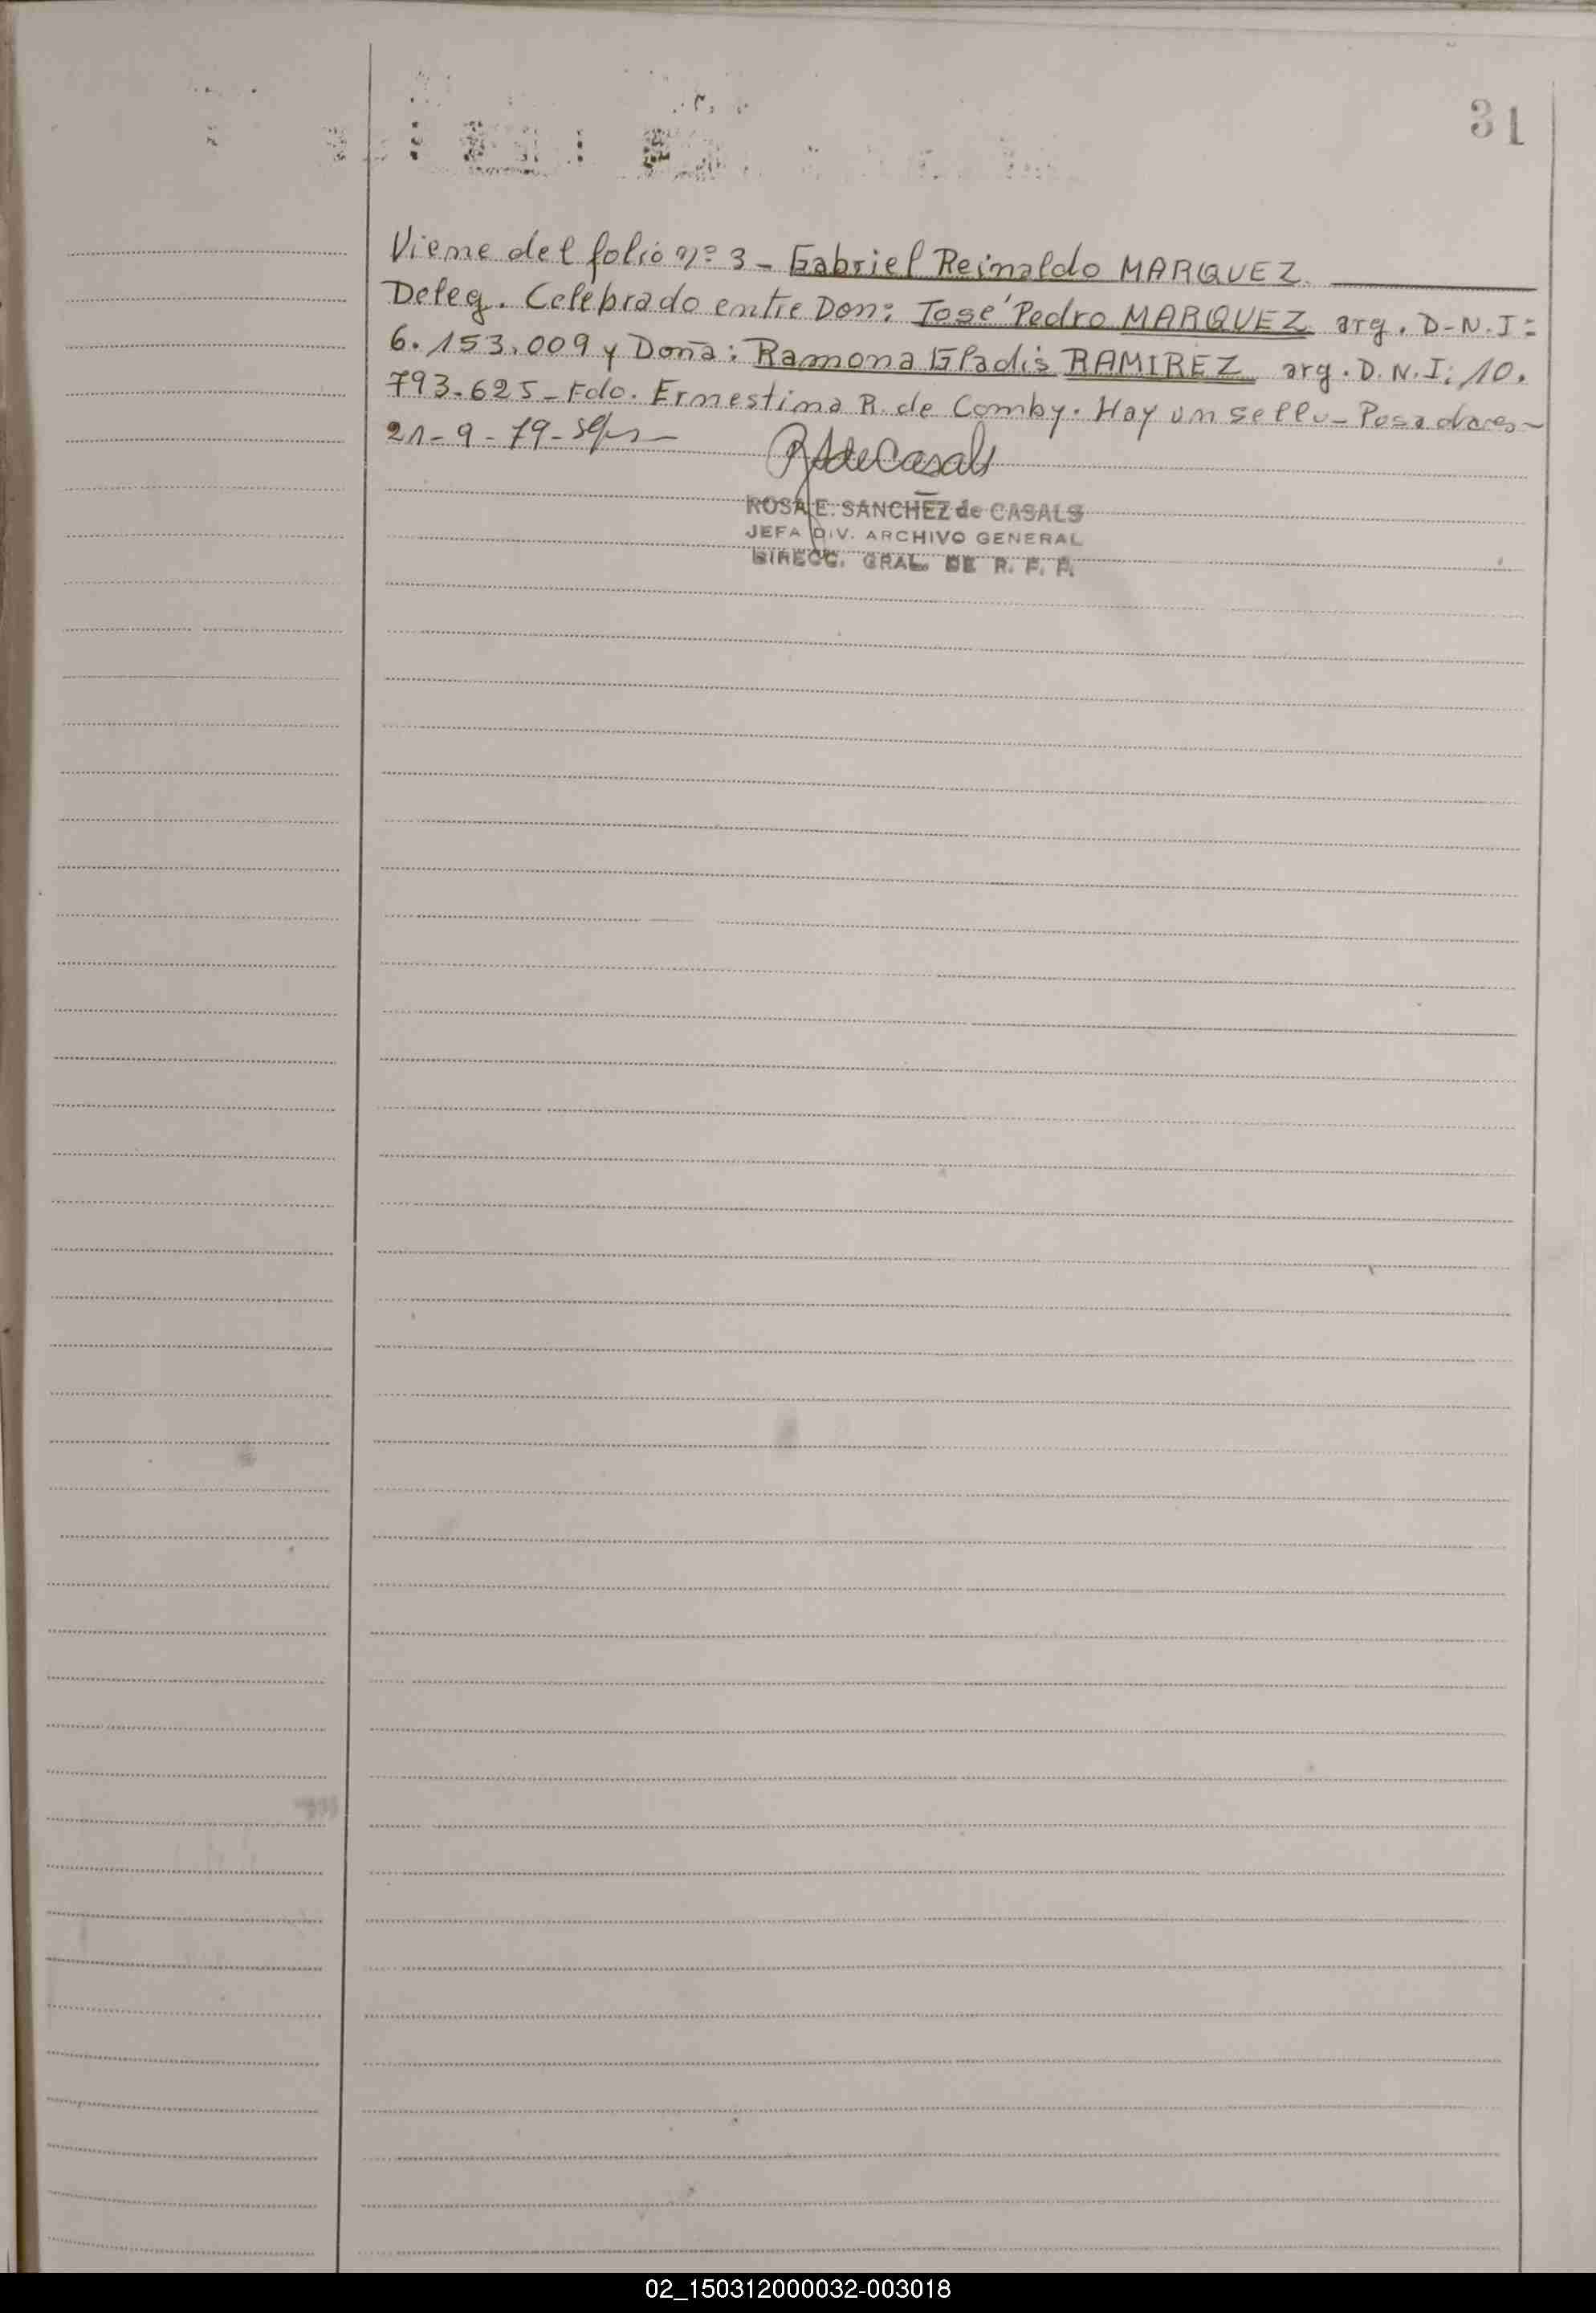 31
Viene del folio nº 3 - Gabriel Reinaldo MARQUEZ.
Deleg. Celebrado entre Don: José Pedro MARQUEZ arg. D-N.I:
6.153.009 y Doña: Ramona Gladis RAMIREZ arg. D.N.I: 10.
793.625 - Fdo. Ernestina R. de Comby. Hay un sello - Posadas -
21-9-79-
RSdeCasals
ROSA E. SANCHEZ de CASALS
JEFA DIV. ARCHIVO GENERAL
DIRECC. GRAL. DE R. P. P.
02_150312000032-003018